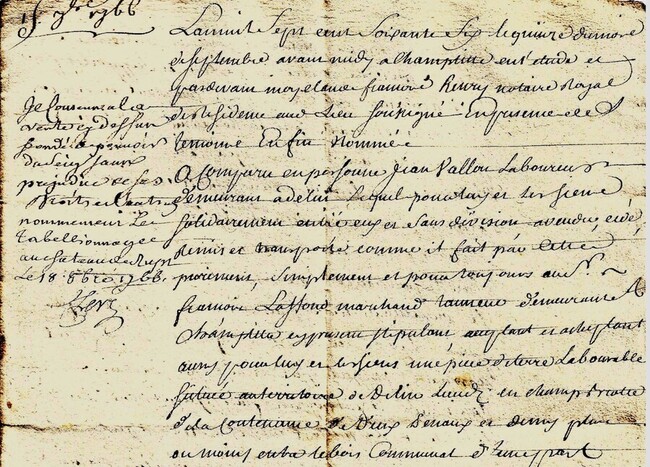 15 7bre 1766
Lan mil Sept cent Soixante Six le quinze du mois
de septembre avant midy a Champlitte en létude et
pardevant moy Claude francois Henry notaire Royal
de Residence aud Lieu Soussigné En presence des
temoins Enfin Nommés
A Comparu en personne Jean Vallou Laboureur
demeurant a delin Lequel pour luy et les siens
solidairement entre eux et sans division a vendu, cedé,
Remis et transporté comme il fait par cette
purement, Simplement et pour toujours au Sr.
francois Lassond marchand tanneur demeurant a
Champlitte cy present stipulant acceptant et achetant
aussy pour luy et les siens une piece de terre Labourable
située au territoire de delin Lieudit en champ
de La Contenance de Deux Denaux et demy plus
ou moins entre le bois Communal d'une part
Je consens a la
vente cy dessus
du Seigr sans
prejudice de ses
droits et autres
nommement Le
tabellionnage
au chateau de
Le 18 8bre 1766.